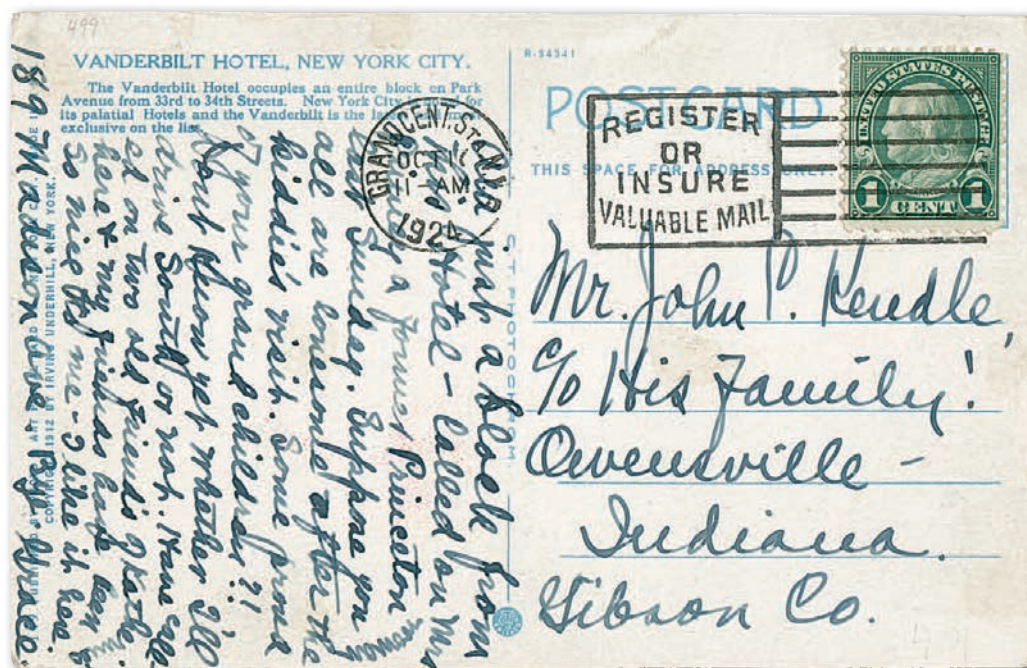 499
VANDERBILT HOTEL, NEW YORK CITY.
The Vanderbilt Hotel occupies an entire block on Park
Avenue from 33rd to 34th Streets. New York City for
its palatial Hotels and the Vanderbilt is the
exclusive on the list.
R-34341
POST CARD
THIS SPACE FOR ADDRESS ONLY
GRAND CENT. STA. N.Y.
OCT
11 AM
192
REGISTER
OR
INSURE
VALUABLE MAIL
UNITED STATES POSTAGE
1 CENT 1
Mr. John P. Kendle,
c/o His Family!
Owensville -
Indiana.
Gibson Co.
Am just a block from
this Hotel - Called on Mrs
a former Princeton
last Sunday. Suppose you
all are lonesome after the
kiddie's visit. Some proud
of your grand children?!
Dont know yet whether I'll
drive South or not. Have call-
ed on two old Friends of
here & my friends have been
so nice to me - I like it here.
189 Madison ave -
COPYRIGHT 1912 BY IRVING UNDERHILL, NEW YORK.